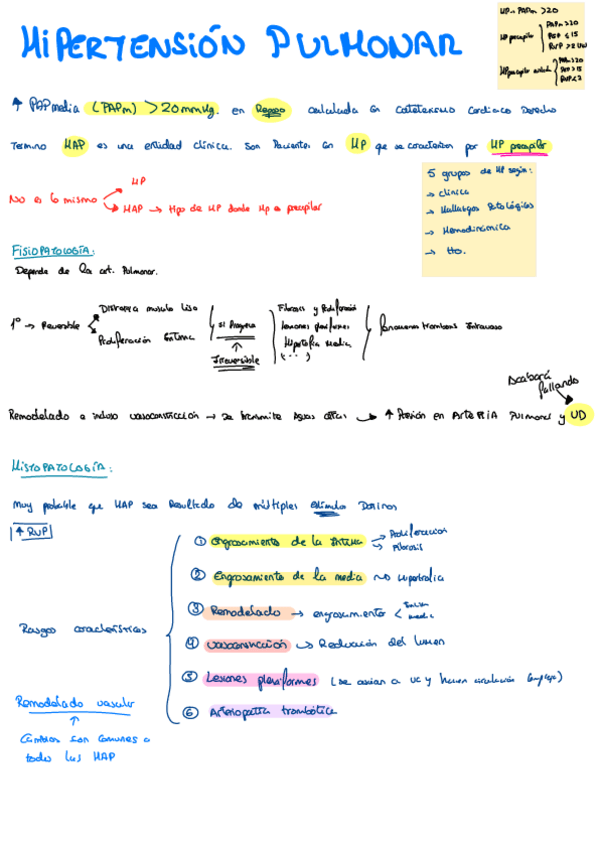 HIPERTENSIÓN PULMONAR
HP → PAPm >20
HP precapilar { PAPm >20
PCP ≤ 15
RVP > 2 UW
PAPm >20
PCP >15
↑ PAP media (PAPm) > 20 mmHg. en Reposo calculada en cateterismo cardiaco Derecho
Termino HAP es una entidad clínica. Son Pacientes con HP que se caracterizan por HP precapilar
5 grupos de HP según:
→ clínica
→ Hallazgos Patológicos
→ Hemodinámica
→ tto.
No es lo mismo
HP
HAP → tipo de HP donde Hp es precapilar
FISIOPATOLOGÍA:
Depende de la art. Pulmonar.
1º → Reversible
musculo liso
Proliferación íntima
si Progresa
↑
Irreversible
Fibrosis y Proliferación
Lesiones plexiformes
Hipertrofia media
(...)
fenomenos trombosis Intravaso
Acabará fallando
Remodelado e incluso vasoconstricción → se transmite → ↑ Presión en ARTERIA Pulmonar y VD
HISTOPATOLOGÍA:
Muy probable que HAP sea Resultado de múltiples estímulos Dañinos
↑ RVP
Rasgos característicos
① Engrosamiento de la íntima → Proliferación
→ Fibrosis
② Engrosamiento de la media → Hipertrofia
③ Remodelado → engrosamiento < íntima
media
④ vasoconstricción → Reducción del lumen
⑤ Lesiones plexiformes (se asocian a VC y hacen circulación compleja)
⑥ Arteriopatía trombótica
Remodelado vascular
↑
Cambios son comunes a
todas las HAP